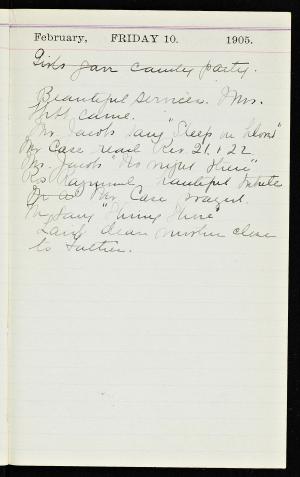 February, FRIDAY 10. 1905.
Girls candy party.
Beautiful services. Mrs.
came.
Mr Jacobs sang "Sleep on beloved"
Mr Case read Rev 21, & 22
Mrs. Jacobs "No night there"
Raymond beautiful tribute
Mr Case prayed.
They sang "Shining Shore"
Laid dear mother close
to Father.